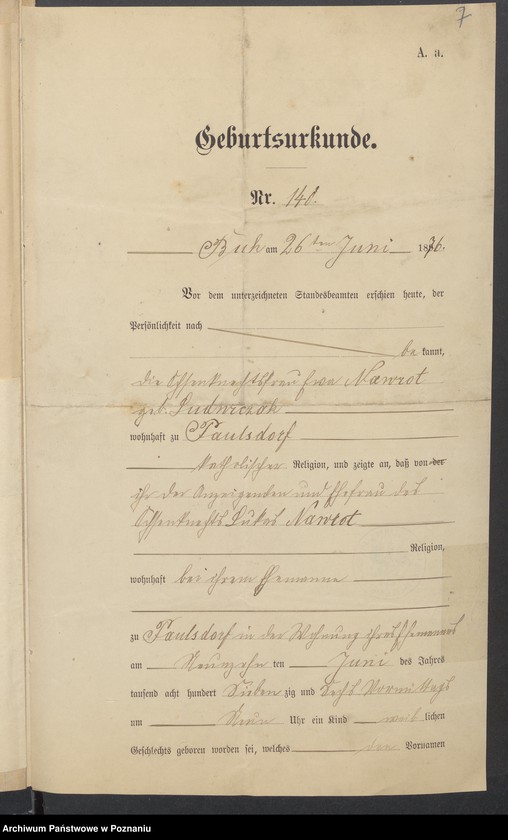 7
A. a.
Geburtsurkunde.
Nr. 148.
Buk am 26 ten Juni 1876.
Vor dem unterzeichneten Standesbeamten erschien heute, der
Persönlichkeit nach
be kannt,
die Ochsenknechtsfrau Eva Nawrot
geb. Ludwiczak
wohnhaft zu Paulsdorf
katholischer Religion, und zeigte an, daß von der
ihr der Anzeigenden und Ehefrau des
Ochsenknechts Lukas Nawrot
Religion,
wohnhaft bei ihrem Ehemanne
zu Paulsdorf in der Wohnung ihres Ehemannes
am Neunzehn ten Juni des Jahres
tausend acht hundert Sieben zig und Sechs Vormittags
um Neun Uhr ein Kind weib lichen
Geschlechts geboren worden sei, welches den Vornamen
Archiwum Państwowe w Poznaniu